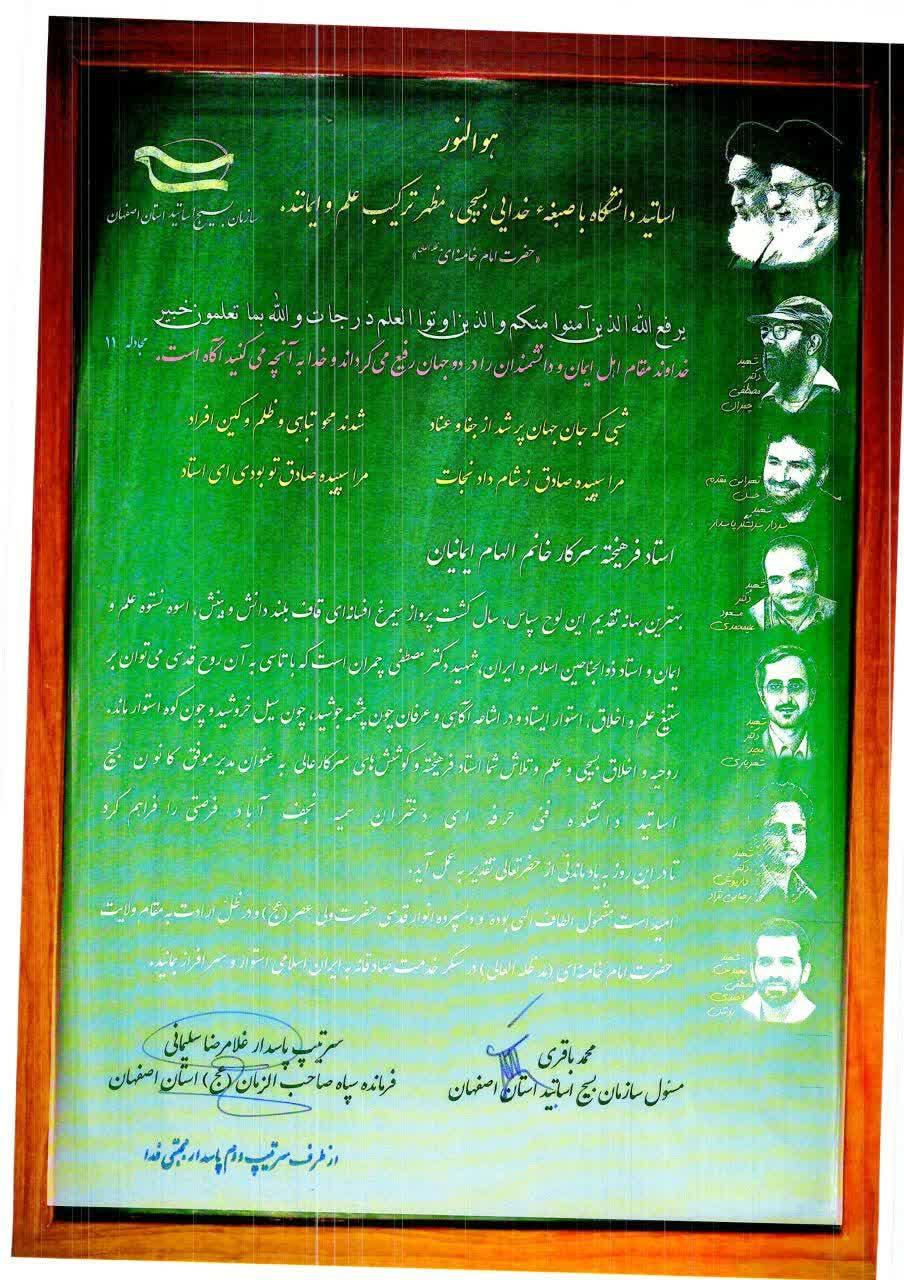 هوالنور
سازمان بسیج اساتید استان اصفهان
اساتید دانشگاه با صبغهٔ خدایی بسیجی، مظهر ترکیب علم و ایمانند.
«حضرت امام خامنه‌ای»
یرفع الله الذین آمنوا منکم والذین اوتوا العلم درجات والله بما تعلمون خبیر
مجادله ۱۱
خداوند مقام اهل ایمان و دانشمندان را در دو جهان رفیع می‌گرداند و خدا به آنچه می‌کنید آگاه است.
شبی که جان جهان پر شد از جفا و عناد شدند محو تباهی و ظلم و کین افراد
مرا سپیده صادق ز شام داد نجات مرا سپیده صادق تو بودی ای استاد
استاد فرهیخته سرکار خانم الهام ایمانیان
بهترین بهانه تقدیم این لوح سپاس، سال گشت پرواز سیمرغ افسانه‌ای قاف بلند دانش و بینش، اسوه نستوه علم و
ایمان و استاد ذوالجناحین اسلام و ایران، شهید دکتر مصطفی چمران است که با تاسی به آن روح قدسی می‌توان بر
ستیغ علم و اخلاق، استوار ایستاد و در اشاعه آگاهی و عرفان چون چشمه جوشید، چون سیل خروشید و چون کوه استوار ماند.
روحیه و اخلاق بسیجی و علم و تلاش شما استاد فرهیخته و کوشش‌های سرکارعالی به عنوان مدیر موفق کانون بسیج
اساتید دانشکده فنی حرفه ای دختران سمیه نجف آباد فرصتی را فراهم کرد
تا در این روز به یاد ماندنی از حضرتعالی تقدیر به عمل آید.
امید است مشمول الطاف الهی بوده و دلسپرده انوار قدسی حضرت ولی عصر (عج) و در ظل ارادت به مقام ولایت
حضرت امام خامنه‌ای (مد ظله العالی) در سنگر خدمت صادقانه به ایران اسلامی استوار و سرافراز بمانید.
شهید
دکتر
مصطفی
چمران
تهرانی مقدم
حسن
شهید
سردار سرلشگر پاسدار
شهید
دکتر
مسعود
علیمحمدی
شهید
دکتر
مجید
شهریاری
شهید
دکتر
داریوش
رضایی نژاد
شهید
مصطفی
احمدی
روشن
محمد باقری
مسئول سازمان بسیج اساتید استان اصفهان
سرتیپ پاسدار غلامرضا سلیمانی
فرمانده سپاه صاحب الزمان (عج) استان اصفهان
از طرف سرتیپ دوم پاسدار مجتبی فدا